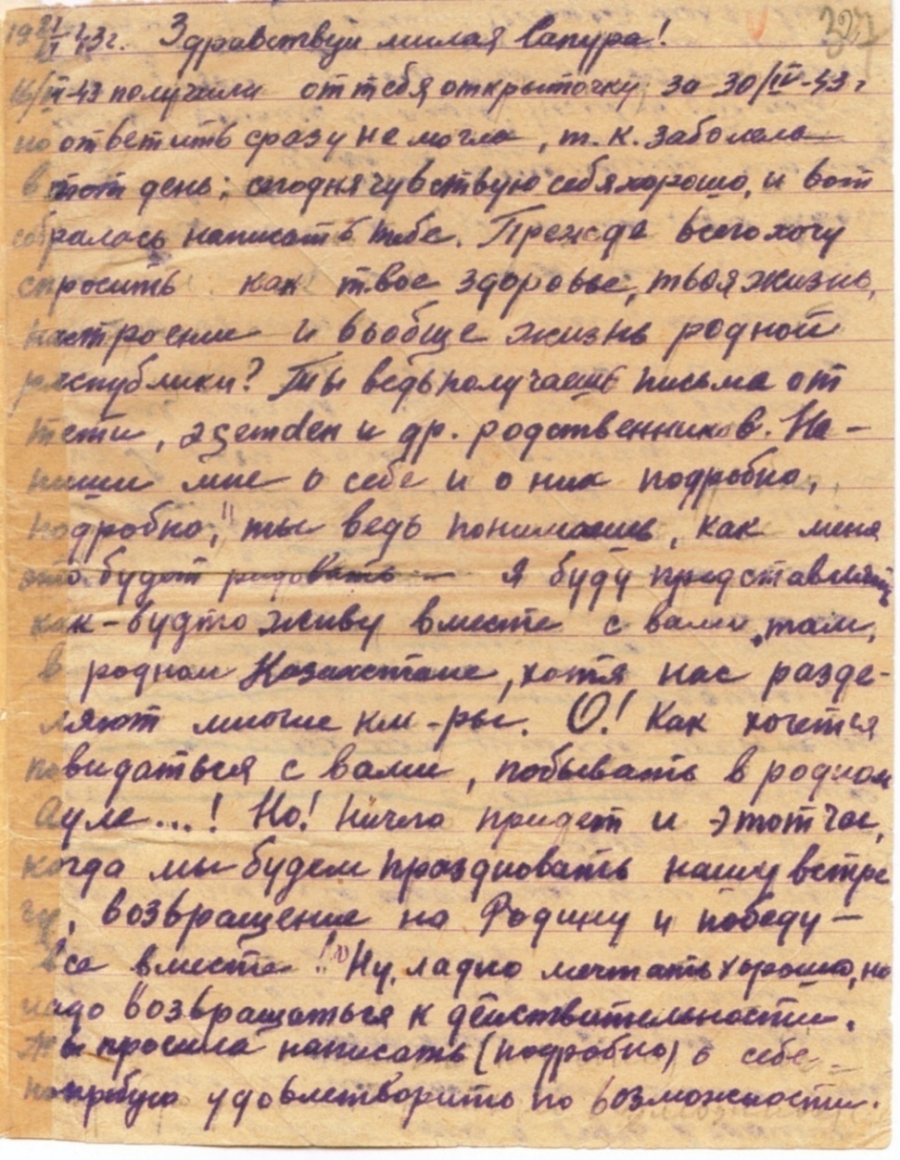 19 21/VI 43г. Здравствуй милая Сапура! 327
16/VI-43 получили от тебя открыточку за 30/IV-43 г
но ответить сразу не могла, т.к. заболела
в тот день; сегодня чувствую себя хорошо, и вот
собралась написать тебе. Прежде всего хочу
спросить как твое здоровье, твоя жизнь,
настроение и вообще жизнь родной
республики? Ты ведь получаешь письма от
тети, и др. родственников. На-
пиши мне о себе и о них подробно,
подробно," ты ведь понимаешь, как меня
это будет радовать — я буду представлять
как-будто живу вместе с вами, там,
в родном Казахстане, хотя нас разде-
ляют многие км-ры. О! Как хочется
повидаться с вами, побывать в родном
ауле...! Но! Ничего придет и этот час,
когда мы будем праздновать нашу встре
чу, возвращение на Родину и победу —
все вместе! Ну, ладно мечтать хорошо, но
надо возвращаться к действительности.
Ты просила написать (подробно) о себе —
попробую удовлетворить по возможности.